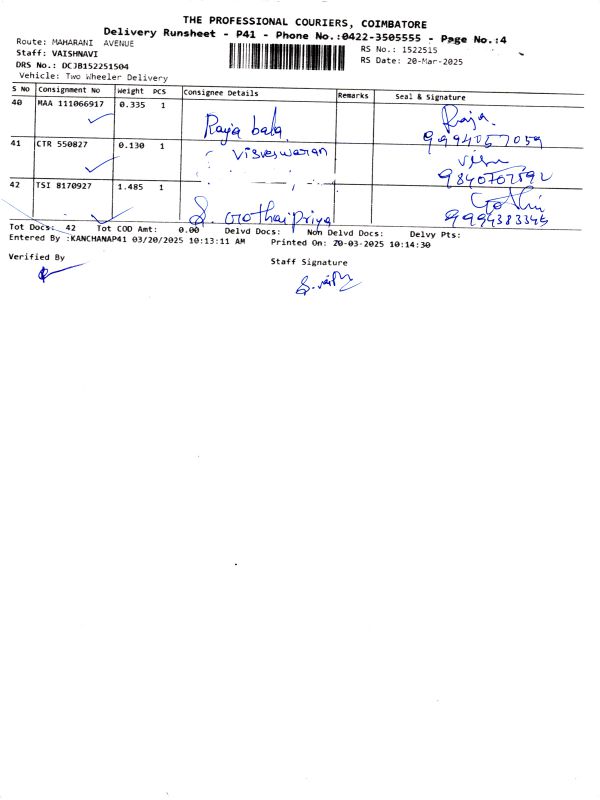 THE PROFESSIONAL COURIERS, COIMBATORE
Delivery Runsheet - P41 - Phone No.:0422-3505555 - Page No.:4
Route: MAHARANI AVENUE
Staff: VAISHNAVI
DRS No.: DCJB152251504
Vehicle: Two Wheeler Delivery
RS No.: 1522515
RS Date: 20-Mar-2025
S No Consignment No Weight PCS Consignee Details Remarks Seal & Signature
40 MAA 111066917 0.335 1 Raja bala Raja.
9994057059
41 CTR 550827 0.130 1 Visveswaran Visu
42 TSI 8170927 1.485 1 S. Gothai Priya Gothi
9994383345
Tot Docs: 42 Tot COD Amt: 0.00 Delvd Docs: Non Delvd Docs: Delvy Pts:
Entered By :KANCHANAP41 03/20/2025 10:13:11 AM Printed On: 20-03-2025 10:14:30
Verified By
Staff Signature